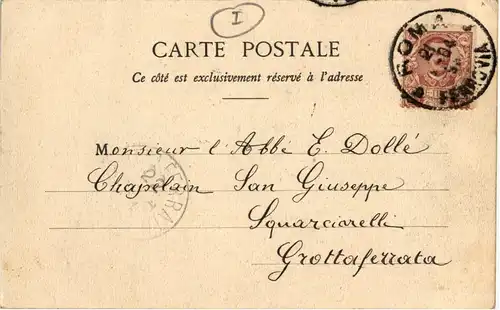 I
CARTE POSTALE
Ce côté est exclusivement réservé à l'adresse
ROMA
Monsieur l'Abbé E. Dollé
Chapelain San Giuseppe
Squarciarelli
Grottaferrata